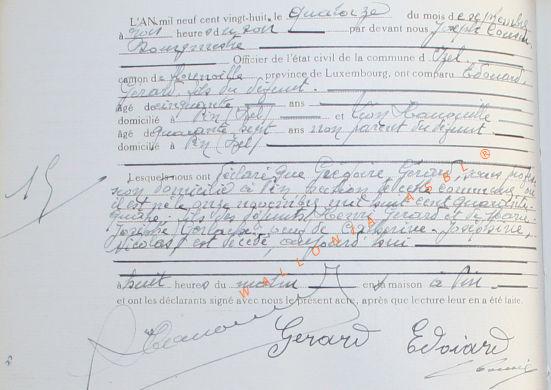 L'AN mil neuf cent vingt-huit, le quatorze du mois de
à trois heures du soir par devant nous Joseph
Bourgmestre
Officier de l'état civil de la commune d' Izel
canton de province de Luxembourg, ont comparu Edouard
Gerard, fils du défunt.
âgé de cinquante ans
domicilié à Pin (Izel) et Léon
âgé de quarante sept ans non parent du défunt
domicilié à Pin (Izel)
15
Lesquels nous ont déclaré que Grégoire Gérard, sans profes-
sion domicilié à Pin section de cette commune où
il est né le onze novembre mil huit cent quarante
fils des défunts Henri Gerard et de Marie
veuf de Catherine Josephine
Nicolas est décédé aujourd'hui
à huit heures du matin en la maison à Pin
et ont les déclarants signé avec nous le présent acte, après que lecture leur en a été faite.
WALLONIA ASBL ®
Gerard Edoiard